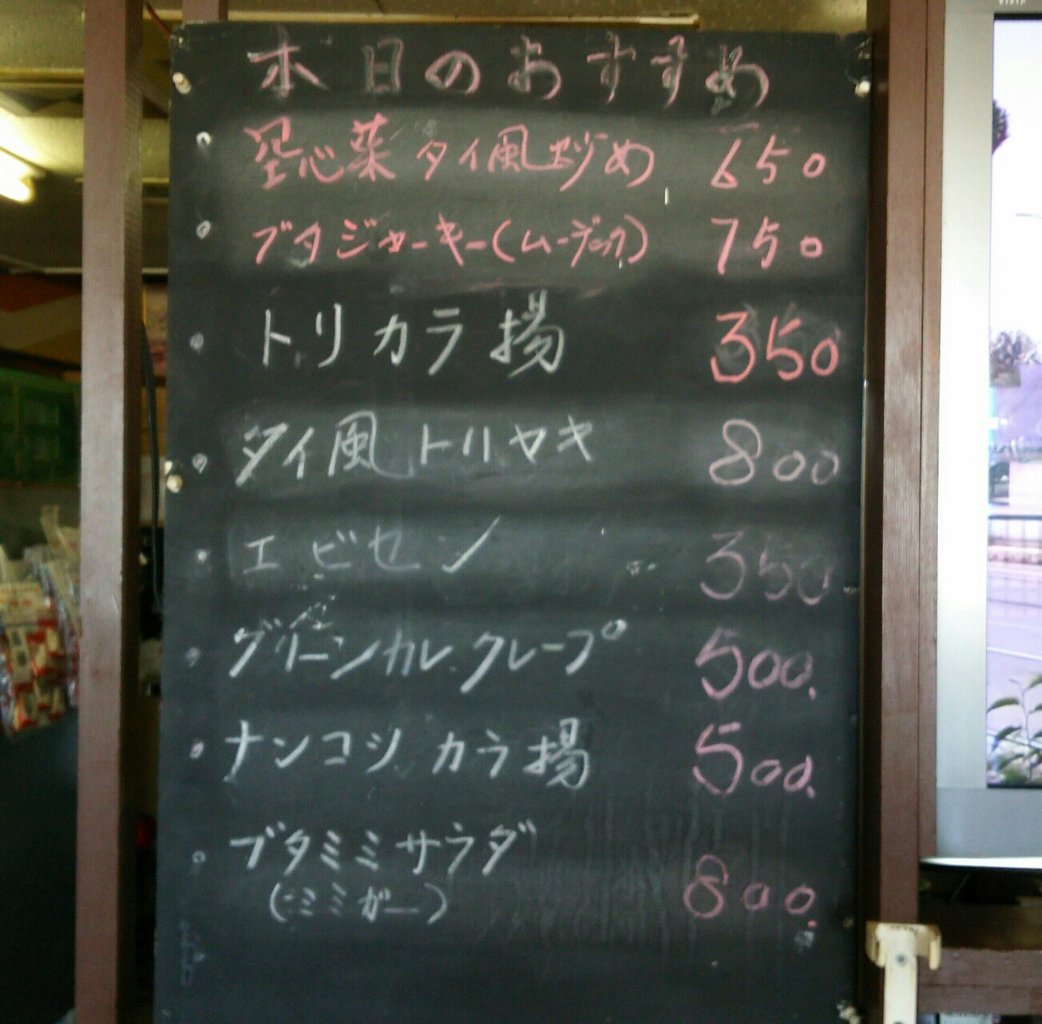 本日のおすすめ
空心菜 タイ風炒め 650
ブタジャーキー(ムーデック) 750
トリカラ揚 350
タイ風 トリヤキ 800
エビセン 350
グリーンカレークレープ 500.
ナンコツ カラ揚 500.
ブタミミサラダ 800.
(ミミガー)